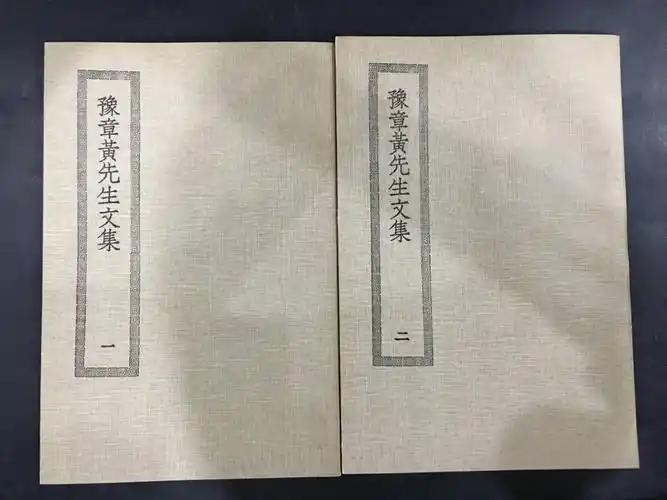 豫章黃先生文集
一
豫章黃先生文集
二